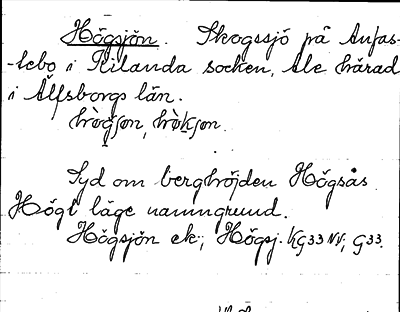 Högsjön. Skogssjö på Anfas-
-tebo i Kilanda socken, Ale härad
i Älfsborgs län.
hògʃøn, hòkʃøn.
Syd om berghöjden Högsås
Högt läge namngrund.
Högsjön ek.; Högsj. KG33 NV; G33.